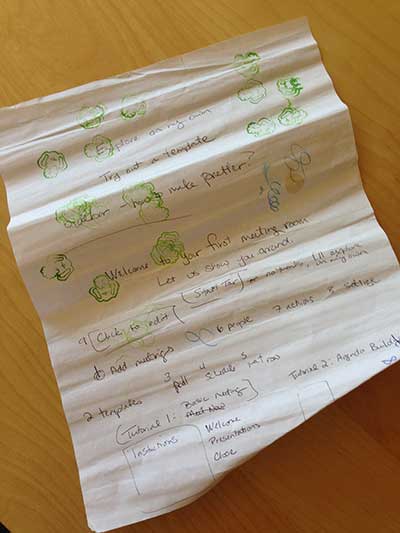 Explore on my own
Try out a template
make prettier?
Welcome to your first meeting room
Let us show you around.
Start Tour no thanks, I'll explore
on my own
9 Click to edit
Add meetings 6 people 7 actions 8 settings
3 4 5
pdf
2 templates
Tutorial 1: Basic meeting Tutorial 2: Agenda Build
Instructions Welcome
Presentations
Close